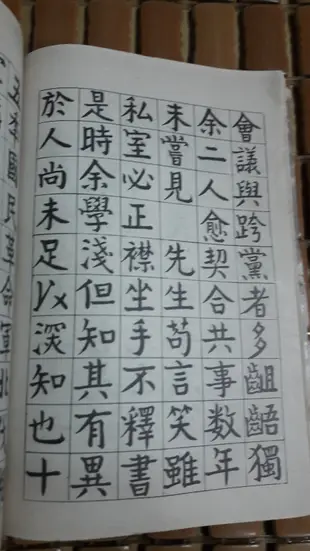 會議與跨黨者多齟齬獨
余二人愈契合共事数年
未嘗見　先生苟言笑雖
私室必正襟坐手不釋書
是時余學淺但知其有異
於人尚未足以深知也十
五秊國民革命軍北